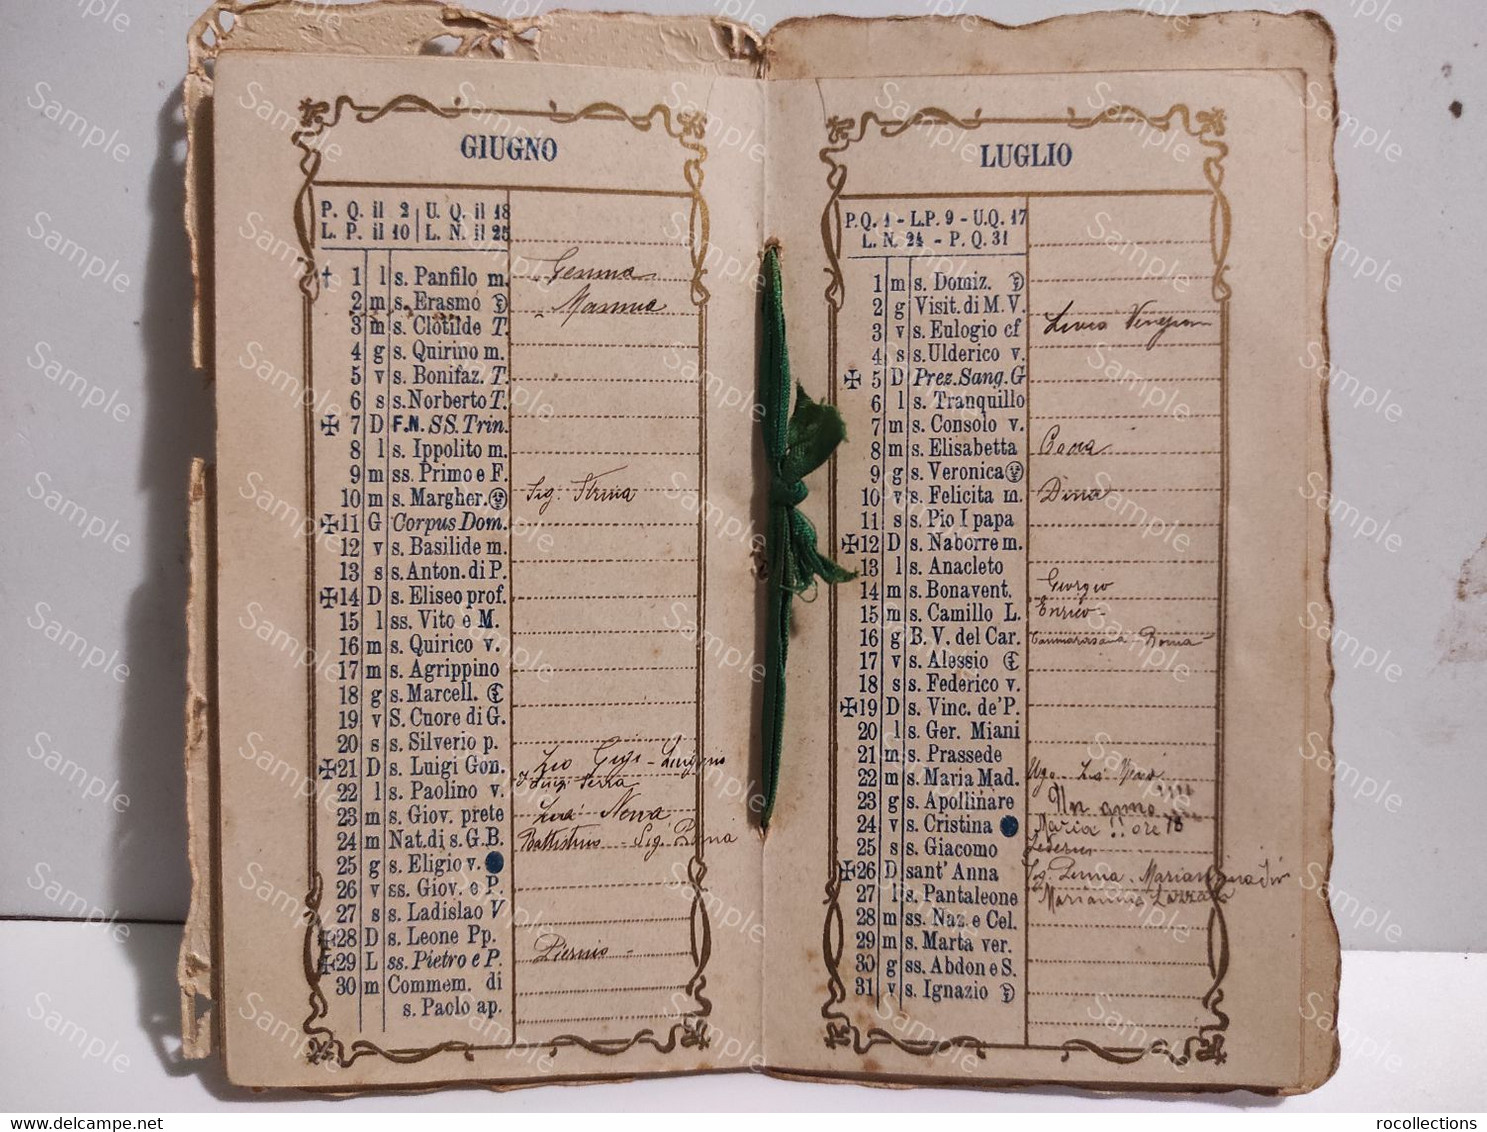 GIUGNO
P. Q. il 2 | U. Q. il 18
L. P. il 10 | L. N. il 25
† 1 l s. Panfilo m. Gemma
2 m s. Erasmo Mamma
3 m s. Clotilde T.
4 g s. Quirino m.
5 v s. Bonifaz. T.
6 s s. Norberto T.
✠ 7 D F.N. SS. Trin.
8 l s. Ippolito m.
9 m ss. Primo e F.
10 m s. Margher. Sig.
✠ 11 G Corpus Dom.
12 v s. Basilide m.
13 s s. Anton. di P.
✠ 14 D s. Eliseo prof.
15 l ss. Vito e M.
16 m s. Quirico v.
17 m s. Agrippino
18 g s. Marcell.
19 v S. Cuore di G.
20 s s. Silverio p.
✠ 21 D s. Luigi Gon. Zio Gigi - Luigino
22 l s. Paolino v. Luigi Serra
23 m s. Giov. prete
24 m Nat. di s. G. B. Battistino - Sig.
25 g s. Eligio v.
26 v ss. Giov. e P.
27 s s. Ladislao V
✠ 28 D s. Leone Pp.
✠ 29 L ss. Pietro e P. Pierino
30 m Commem. di
s. Paolo ap.
LUGLIO
P. Q. 1 - L. P. 9 - U. Q. 17
L. N. 24 - P. Q. 31
1 m s. Domiz.
2 g Visit. di M. V.
3 v s. Eulogio cf Livia
4 s s. Ulderico v.
✠ 5 D Prez. Sang. G
6 l s. Tranquillo
7 m s. Consolo v.
8 m s. Elisabetta
9 g s. Veronica
10 v s. Felicita m. Dina
11 s s. Pio I papa
✠ 12 D s. Naborre m.
13 l s. Anacleto
14 m s. Bonavent. Giorgio
15 m s. Camillo L. Enrico
16 g B. V. del Car. Roma
17 v s. Alessio
18 s s. Federico v.
✠ 19 D s. Vinc. de' P.
20 l s. Ger. Miani
21 m s. Prassede
22 m s. Maria Mad. Ugo
23 g s. Apollinare Un anno !!!!
24 v s. Cristina Maria !! ore 18
25 s s. Giacomo
✠ 26 D sant' Anna
27 l s. Pantaleone Mariannina
28 m ss. Naz. e Cel.
29 m s. Marta ver.
30 g ss. Abdon e S.
31 v s. Ignazio
rocollections